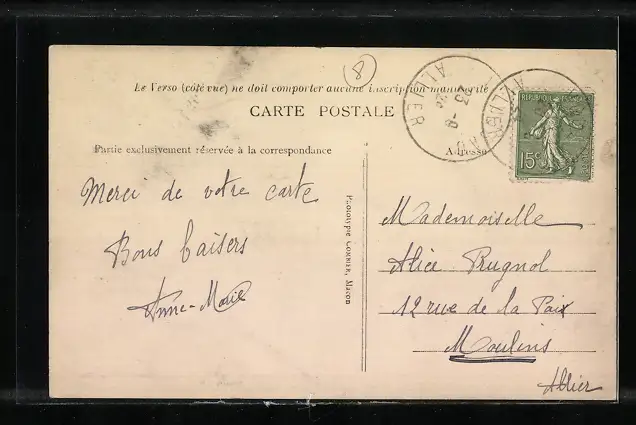 8
Le Verso (côté vue) ne doit comporter aucune inscription manuscrite
CARTE POSTALE
Partie exclusivement réservée à la correspondance
Adresse
Merci de votre carte
Bons baisers
Anne-Marie
Phototype Combier, Macon
Mademoiselle
Alice Rugnol
12 rue de la Paix
Moulins
Allier
ALLIER
ALLIER
15c